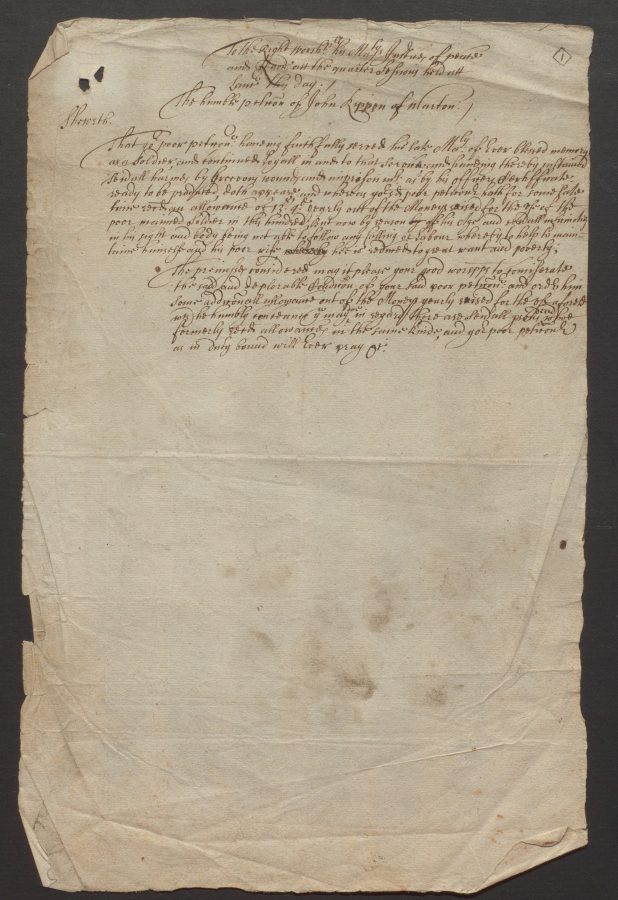 1
To the Right Worshipll his Matys Justices of peace
and Quor: att the quarter Sessions held att
Lanc: this day: /
The humble peticon of John Rippon of Warton. /
Sheweth.
That yor poor peticonr haveing faithfully served his late Maty of Ever blessed memory
as a Soldier and continued loyall in and to that Service and haveing thereby sustained
sevall harmes by receiveing wounds and as by his officers Certifficate
ready to be produced, doth appeare, and whereas yor sd poor peticonr hath for some late
time recd an allowance of yearly out of the Moneys raised for the use of the
poor maimed Soldier in this hundred, But now by reason of his Age and sevall infirmities
in his sight and body being not able to follow any calling or Labour whereby to help to main-
taine himselfe and his poor wife hee is reduced to great want and poverty;
The premisses considered may it please your good worspps to comiserate
the sad and deplorable Condicon of your said poor peticonr and order him
some addiconall allowance out of the Moneys yearly raised for the use aforesd
wch he humbly conceaves yu may, in regard there are sevall dead who have
formerly recd allowances in the same kinde, and yor poor peticonr
as in duty bound will Ever pray &c: